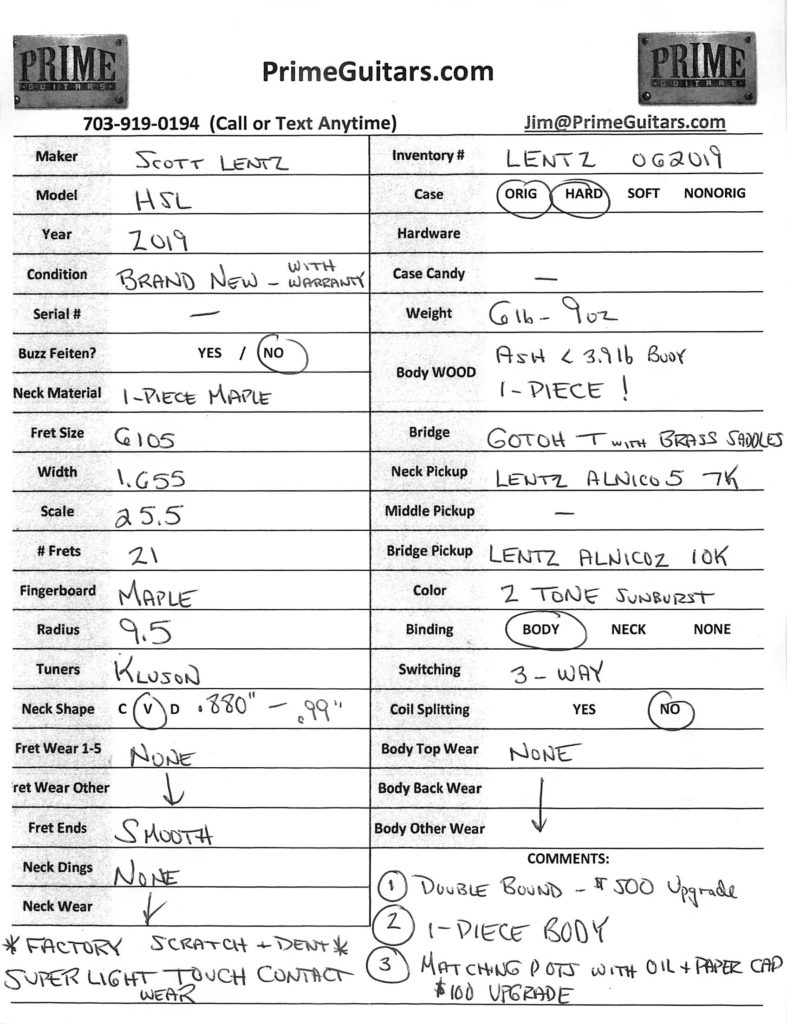 PRIME
GUITARS
PrimeGuitars.com
PRIME
GUITARS
703-919-0194 (Call or Text Anytime)
Jim@PrimeGuitars.com
Maker SCOTT LENTZ
Model HSL
Year 2019
Condition BRAND NEW - WITH WARRANTY
Serial # —
Buzz Feiten? YES / NO
Neck Material 1-PIECE MAPLE
Fret Size 6105
Width 1.655
Scale 25.5
# Frets 21
Fingerboard MAPLE
Radius 9.5
Tuners KLUSON
Neck Shape C V D .880" - .99"
Fret Wear 1-5 NONE
ret Wear Other ↓
Fret Ends SMOOTH
Neck Dings NONE
Neck Wear ↓
*FACTORY SCRATCH + DENT*
SUPER LIGHT TOUCH CONTACT
WEAR
Inventory # LENTZ 062019
Case ORIG HARD SOFT NONORIG
Hardware
Case Candy —
Weight 6lb - 9oz
Body WOOD ASH < 3.9lb BODY
1-PIECE !
Bridge GOTOH T WITH BRASS SADDLES
Neck Pickup LENTZ ALNICO5 7K
Middle Pickup —
Bridge Pickup LENTZ ALNICO2 10K
Color 2 TONE SUNBURST
Binding BODY NECK NONE
Switching 3-WAY
Coil Splitting YES NO
Body Top Wear NONE
Body Back Wear ↓
Body Other Wear
COMMENTS:
1 DOUBLE BOUND - $500 Upgrade
2 1-PIECE BODY
3 MATCHING POTS WITH OIL + PAPER CAP
$100 UPGRADE